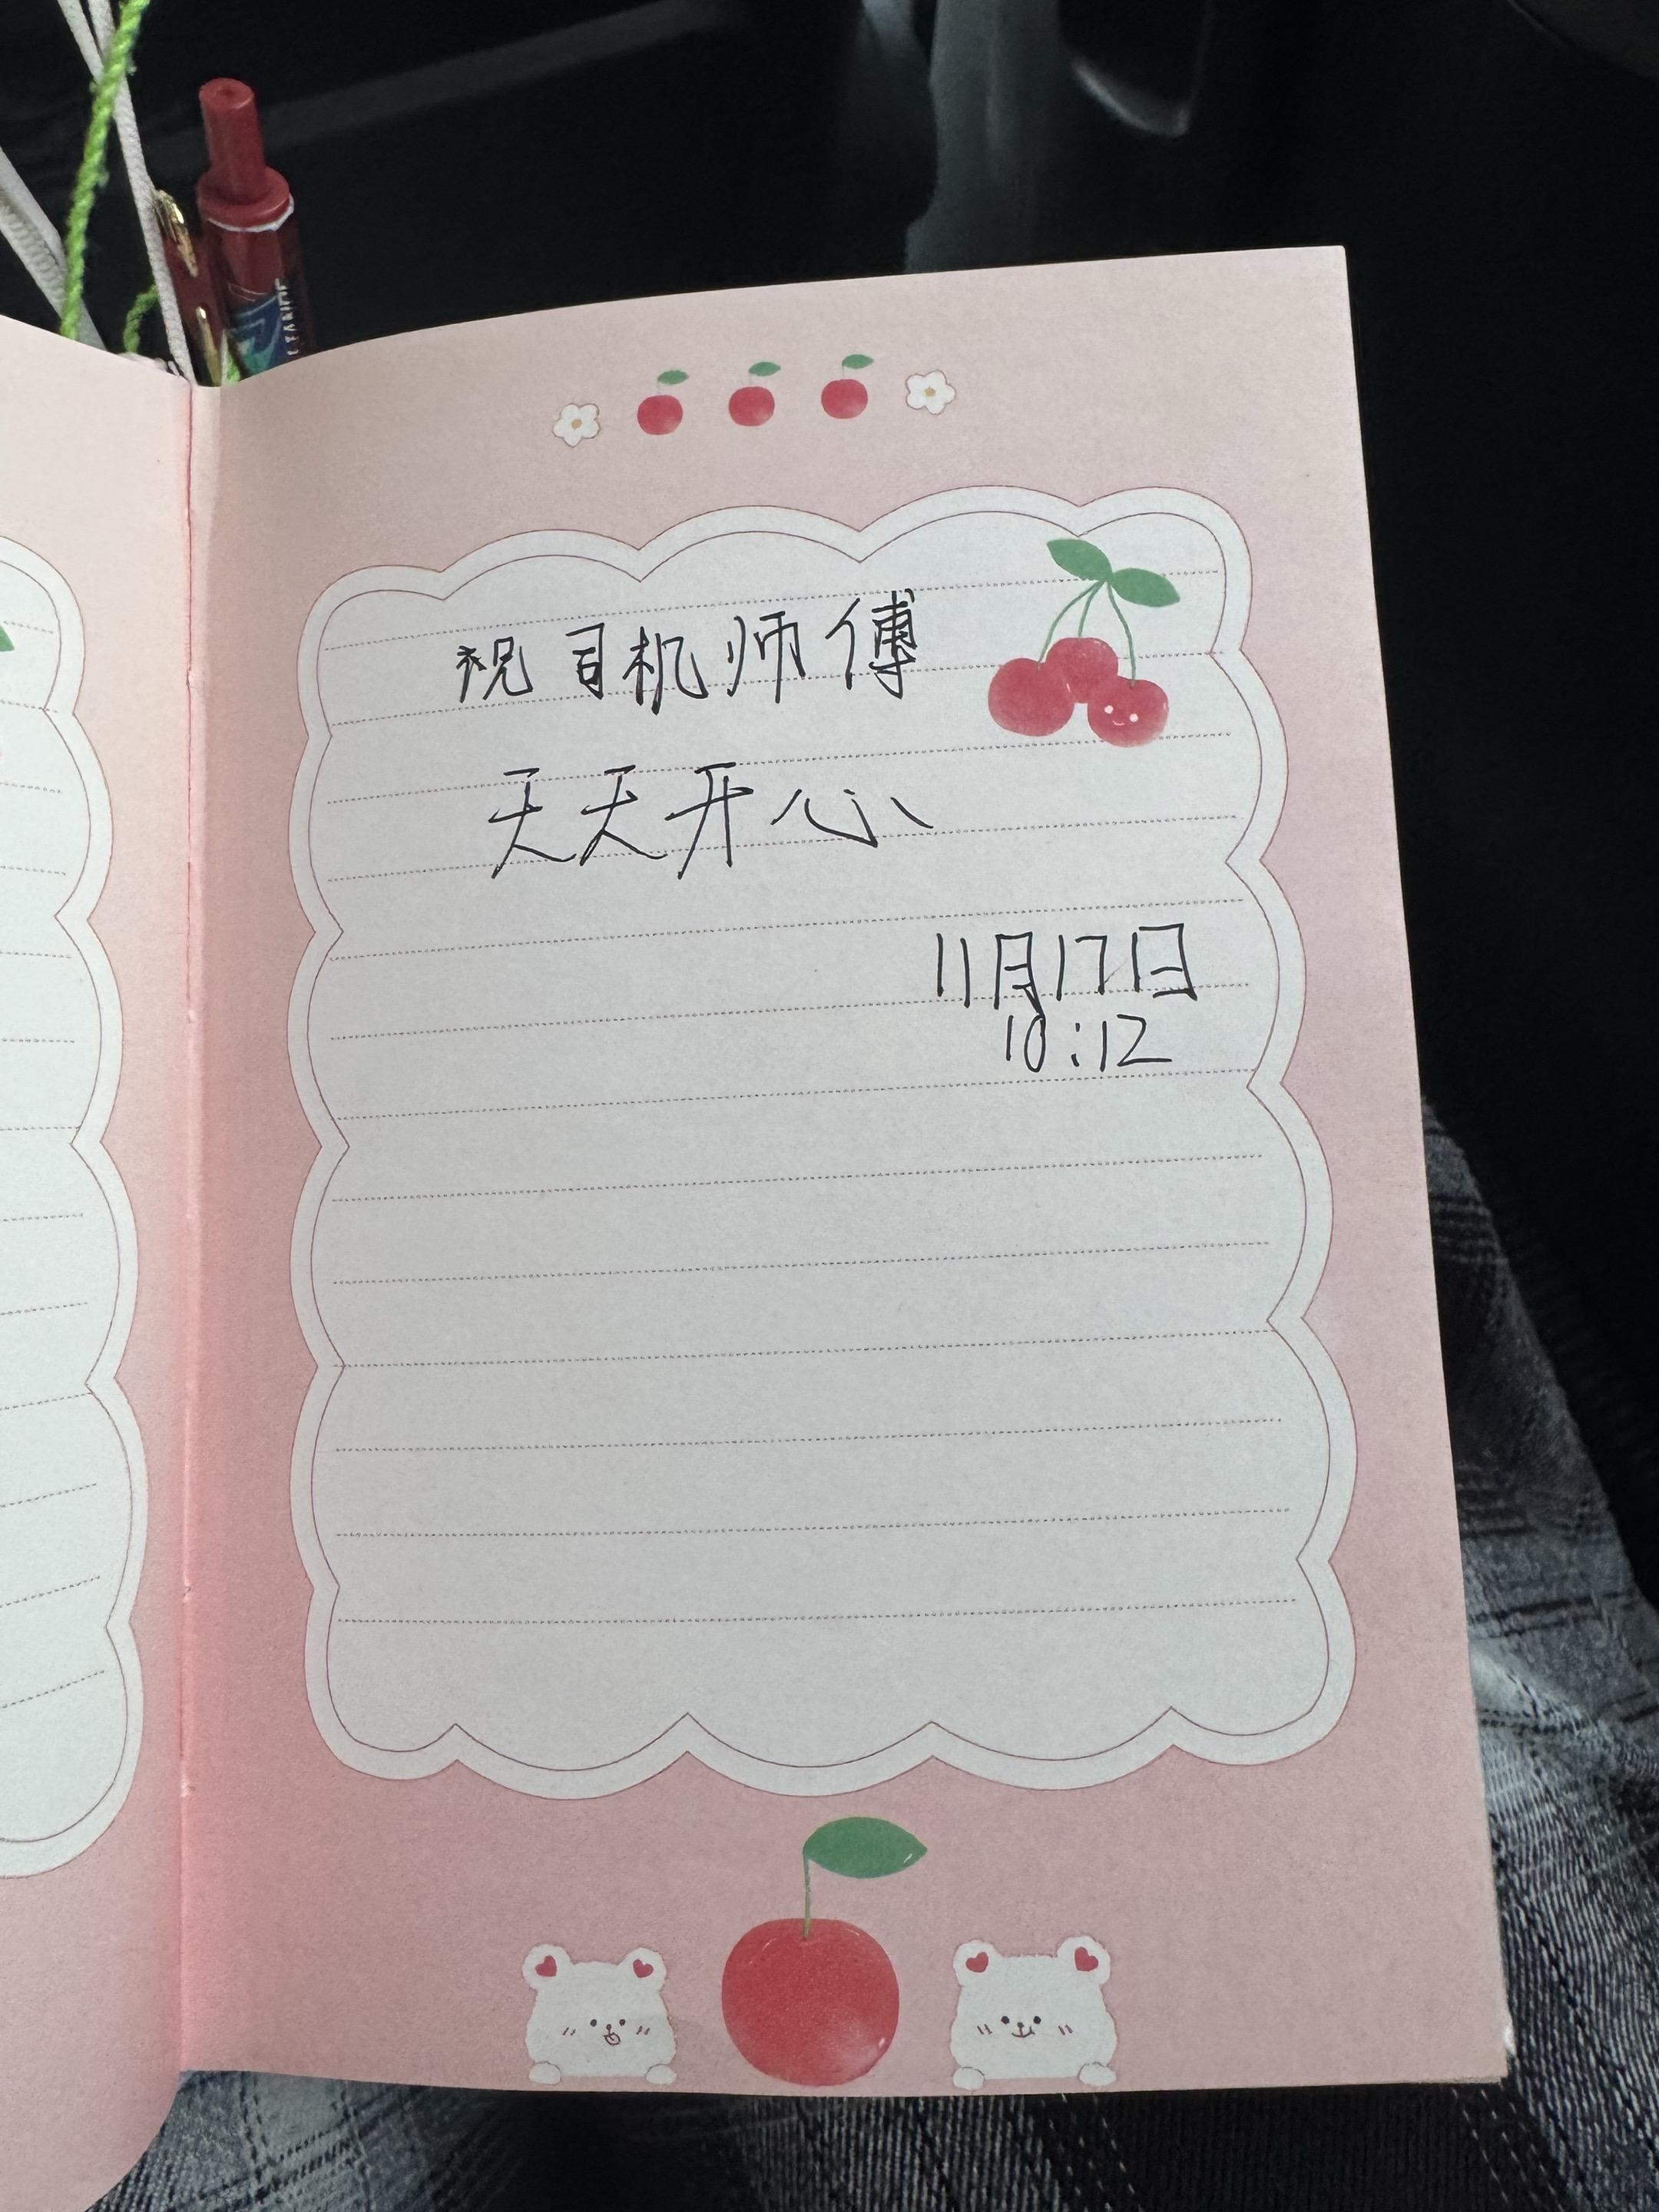 祝司机师傅
天天开心
11月17日
10:12